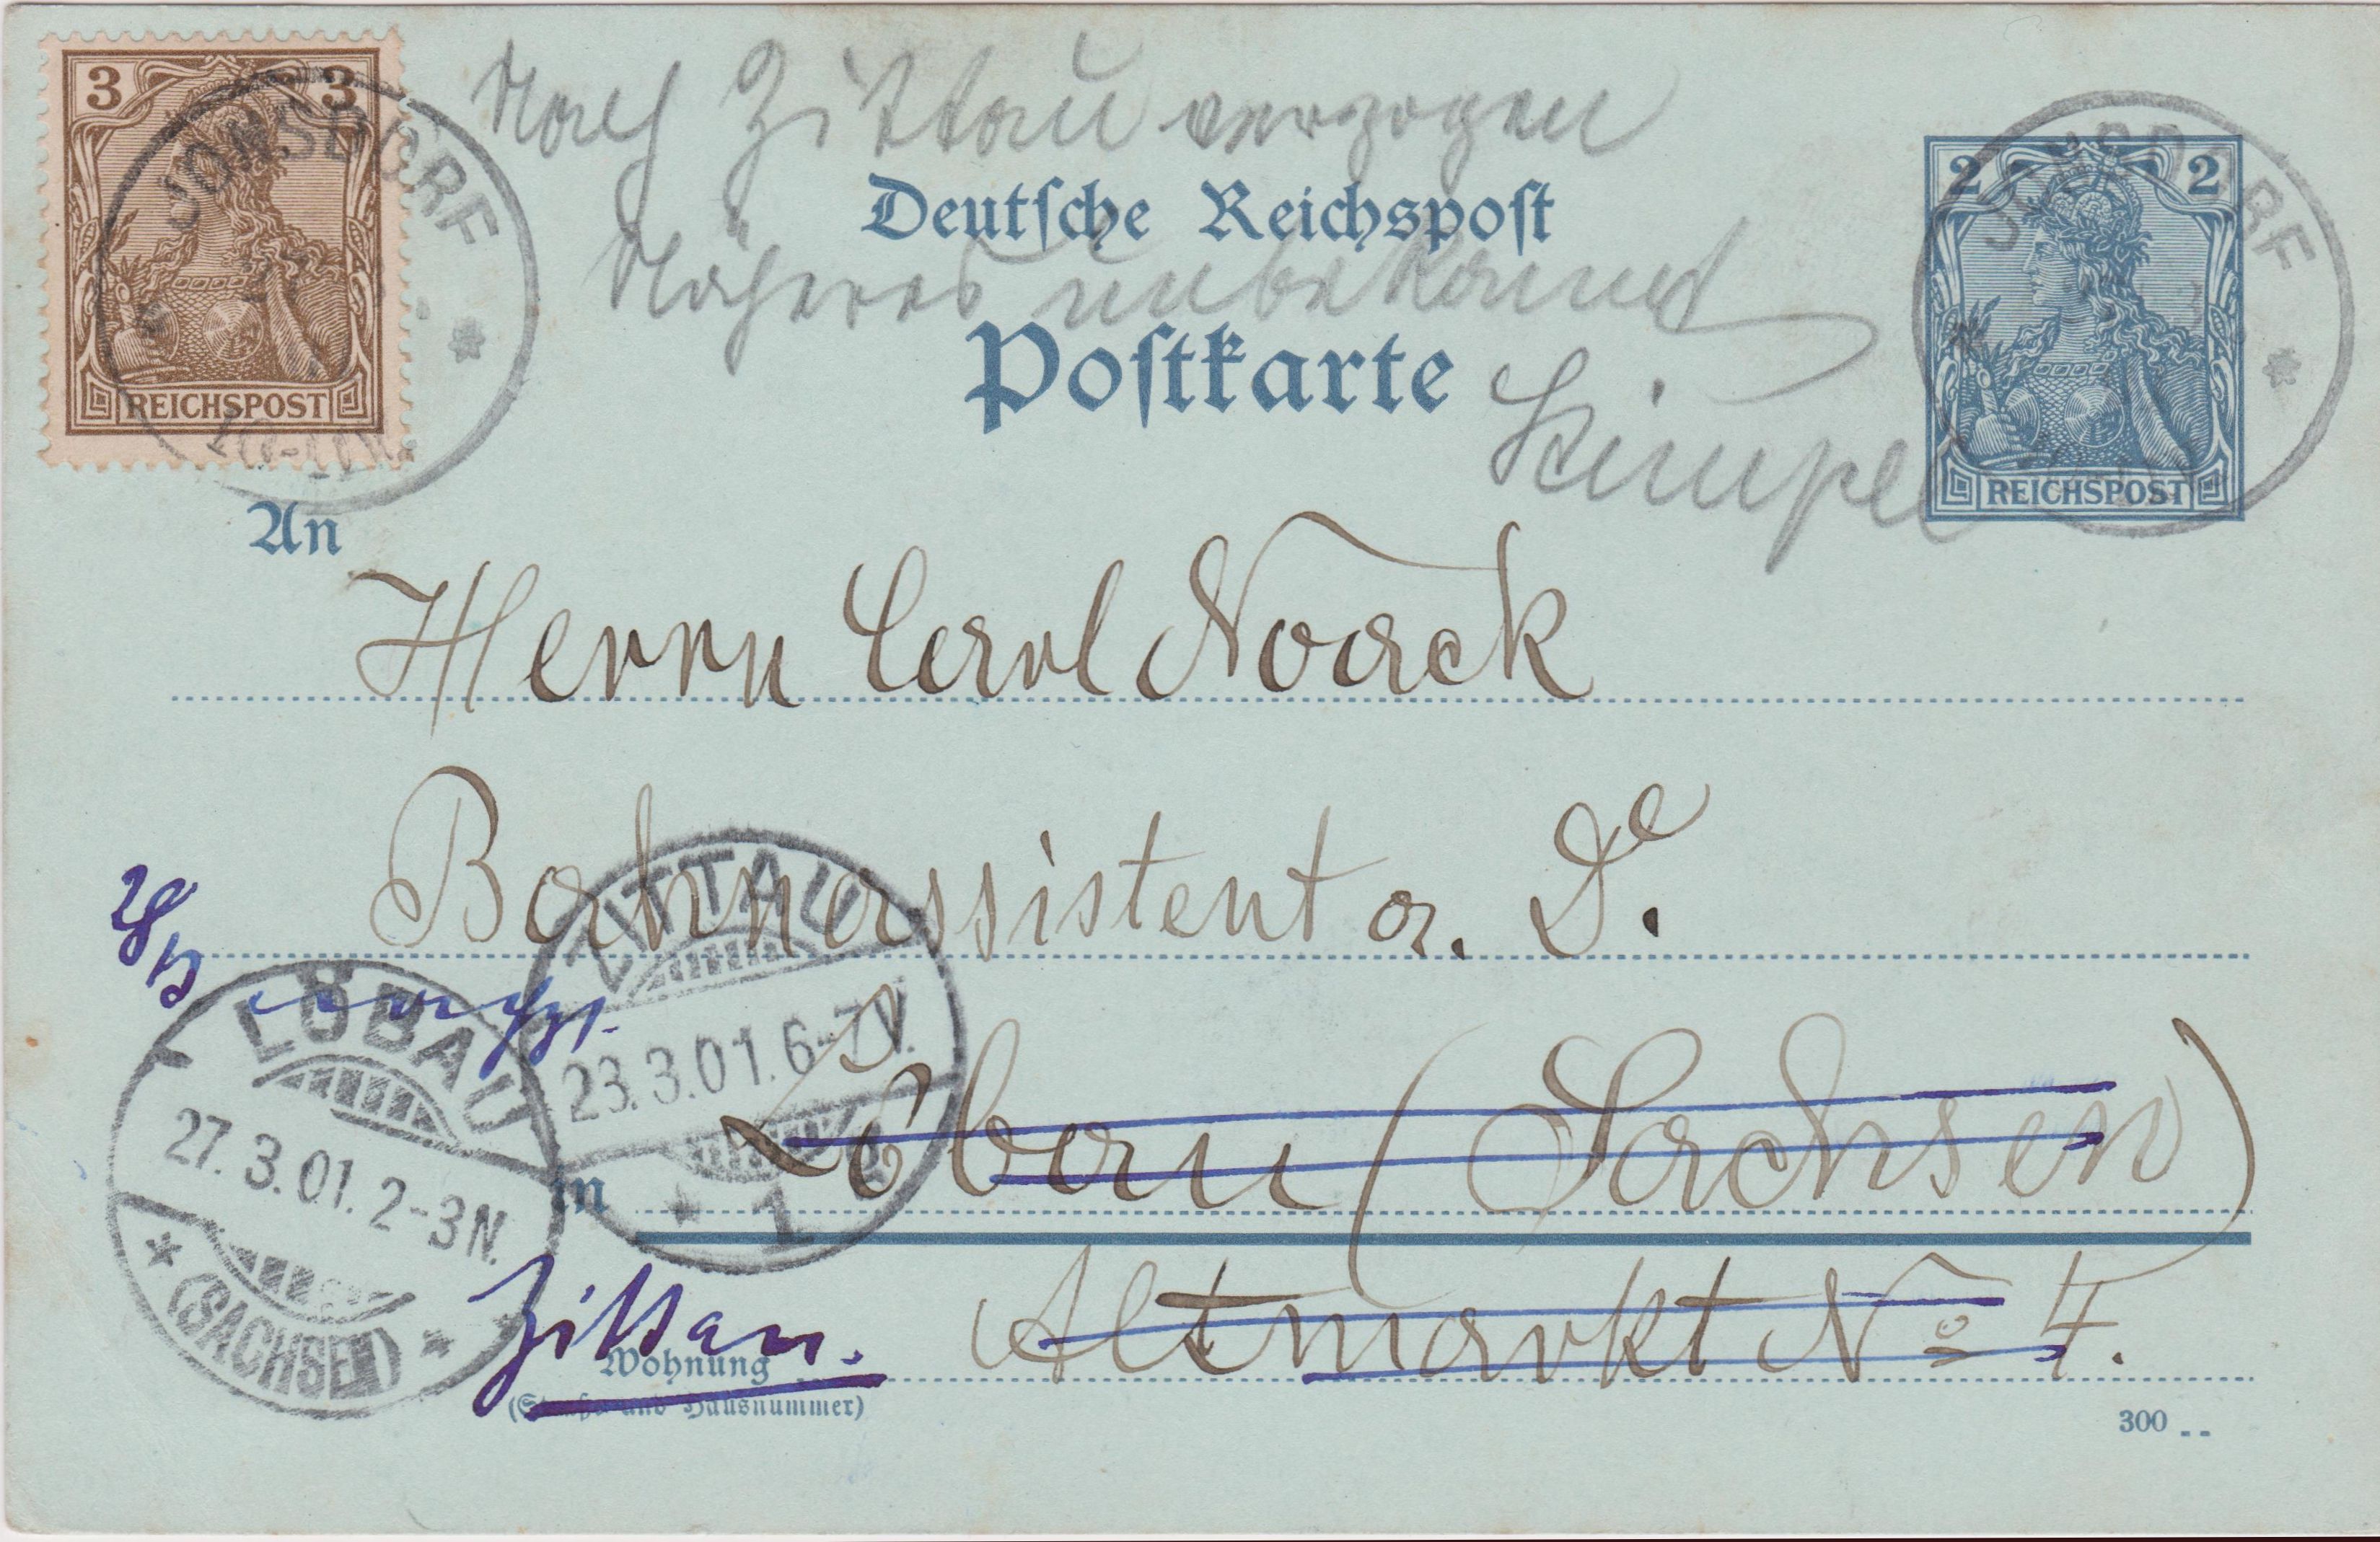 3 3
REICHSPOST
JONSDORF
Nach Zittau verzogen
Deutsche Reichspost
Näheres unbekannt
Postkarte
Kimpel
2 2
REICHSPOST
JONSDORF
An
Herrn Carl Noack
Bahnassistent a. D.
ZITTAU
23.3.01.6-7V.
1
LÖBAU
27.3.01.2-3N.
(SACHSEN)
in Löbau (Sachsen)
Zittau.
Altmarkt No 4.
Wohnung
(Straße und Hausnummer)
300